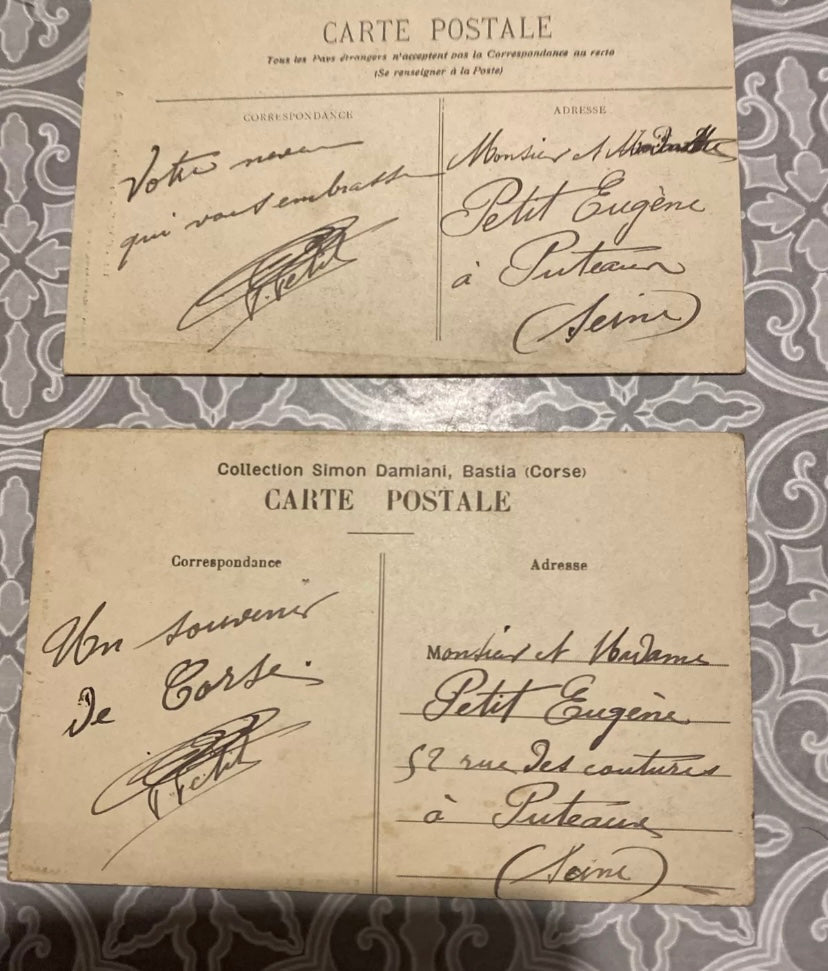 CARTE POSTALE
Tous les Pays étrangers n'acceptent pas la Correspondance au recto
(Se renseigner à la Poste)
CORRESPONDANCE
ADRESSE
Votre neveu
qui vous embrasse
Petit
Monsieur et
Petit Eugène
à Puteaux
(Seine)
Collection Simon Damiani, Bastia (Corse)
CARTE POSTALE
Correspondance
Adresse
Un souvenir
de Corse.
Petit
Monsieur et Madame
Petit Eugène
52 rue des coutures
à Puteaux
(Seine)